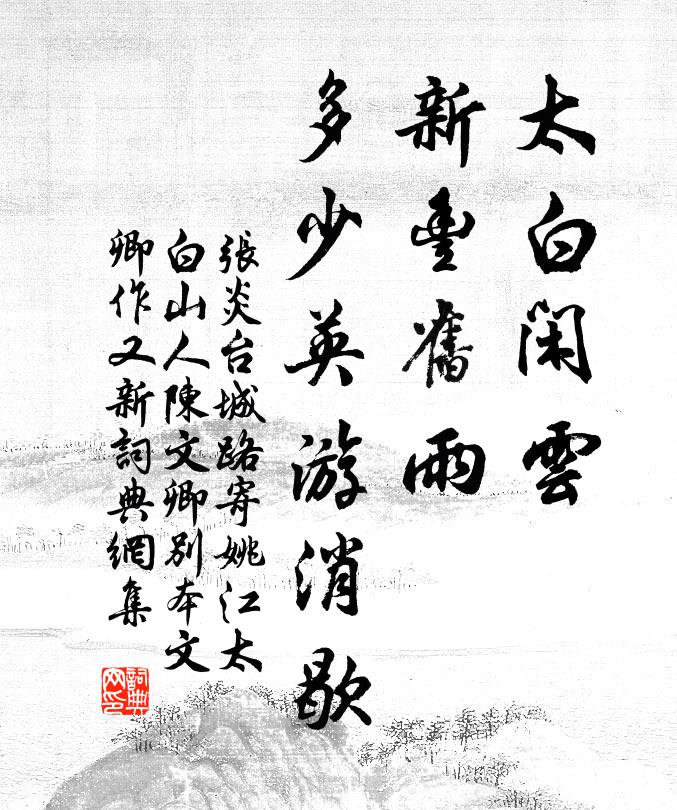 太白閑雲
新豐舊雨
多少英游消歇
張炎台城路寄姚江太
白山人陳文卿別本文
卿作又新詞典網集
詞典
网印